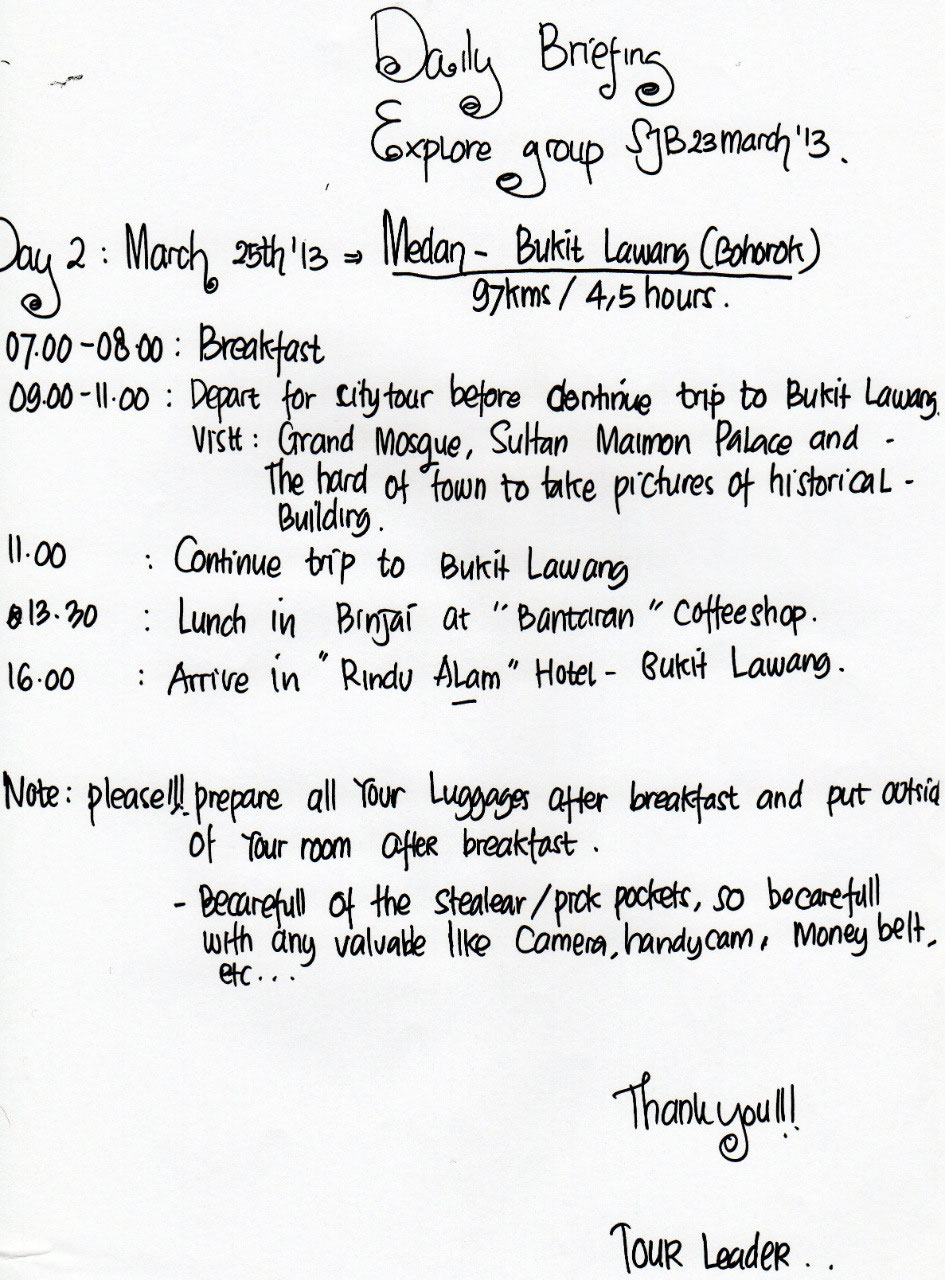 Daily Briefing
Explore group SJB 23 march '13.
Day 2 : March 25th '13 ⇒ Medan - Bukit Lawang (Bohorok)
97kms / 4,5 hours.
07.00 - 08.00 : Breakfast
09.00 - 11.00 : Depart for city tour before continue trip to Bukit Lawang.
Visit : Grand Mosque, Sultan Maimon Palace and -
The hard of town to take pictures of historical -
Building.
11.00 : Continue trip to Bukit Lawang
13.30 : Lunch in Binjai at "Bantaran" Coffeeshop.
16.00 : Arrive in "Rindu ALam" Hotel - Bukit Lawang.
Note : please!!! prepare all Your Luggages after breakfast and put outsid
of Your room after breakfast .
- Becarefull of the stealear / pick pockets, so becarefull
with any valuable like Camera, handycam, Money belt,
etc . . .
Thank you!!!
Tour Leader . .